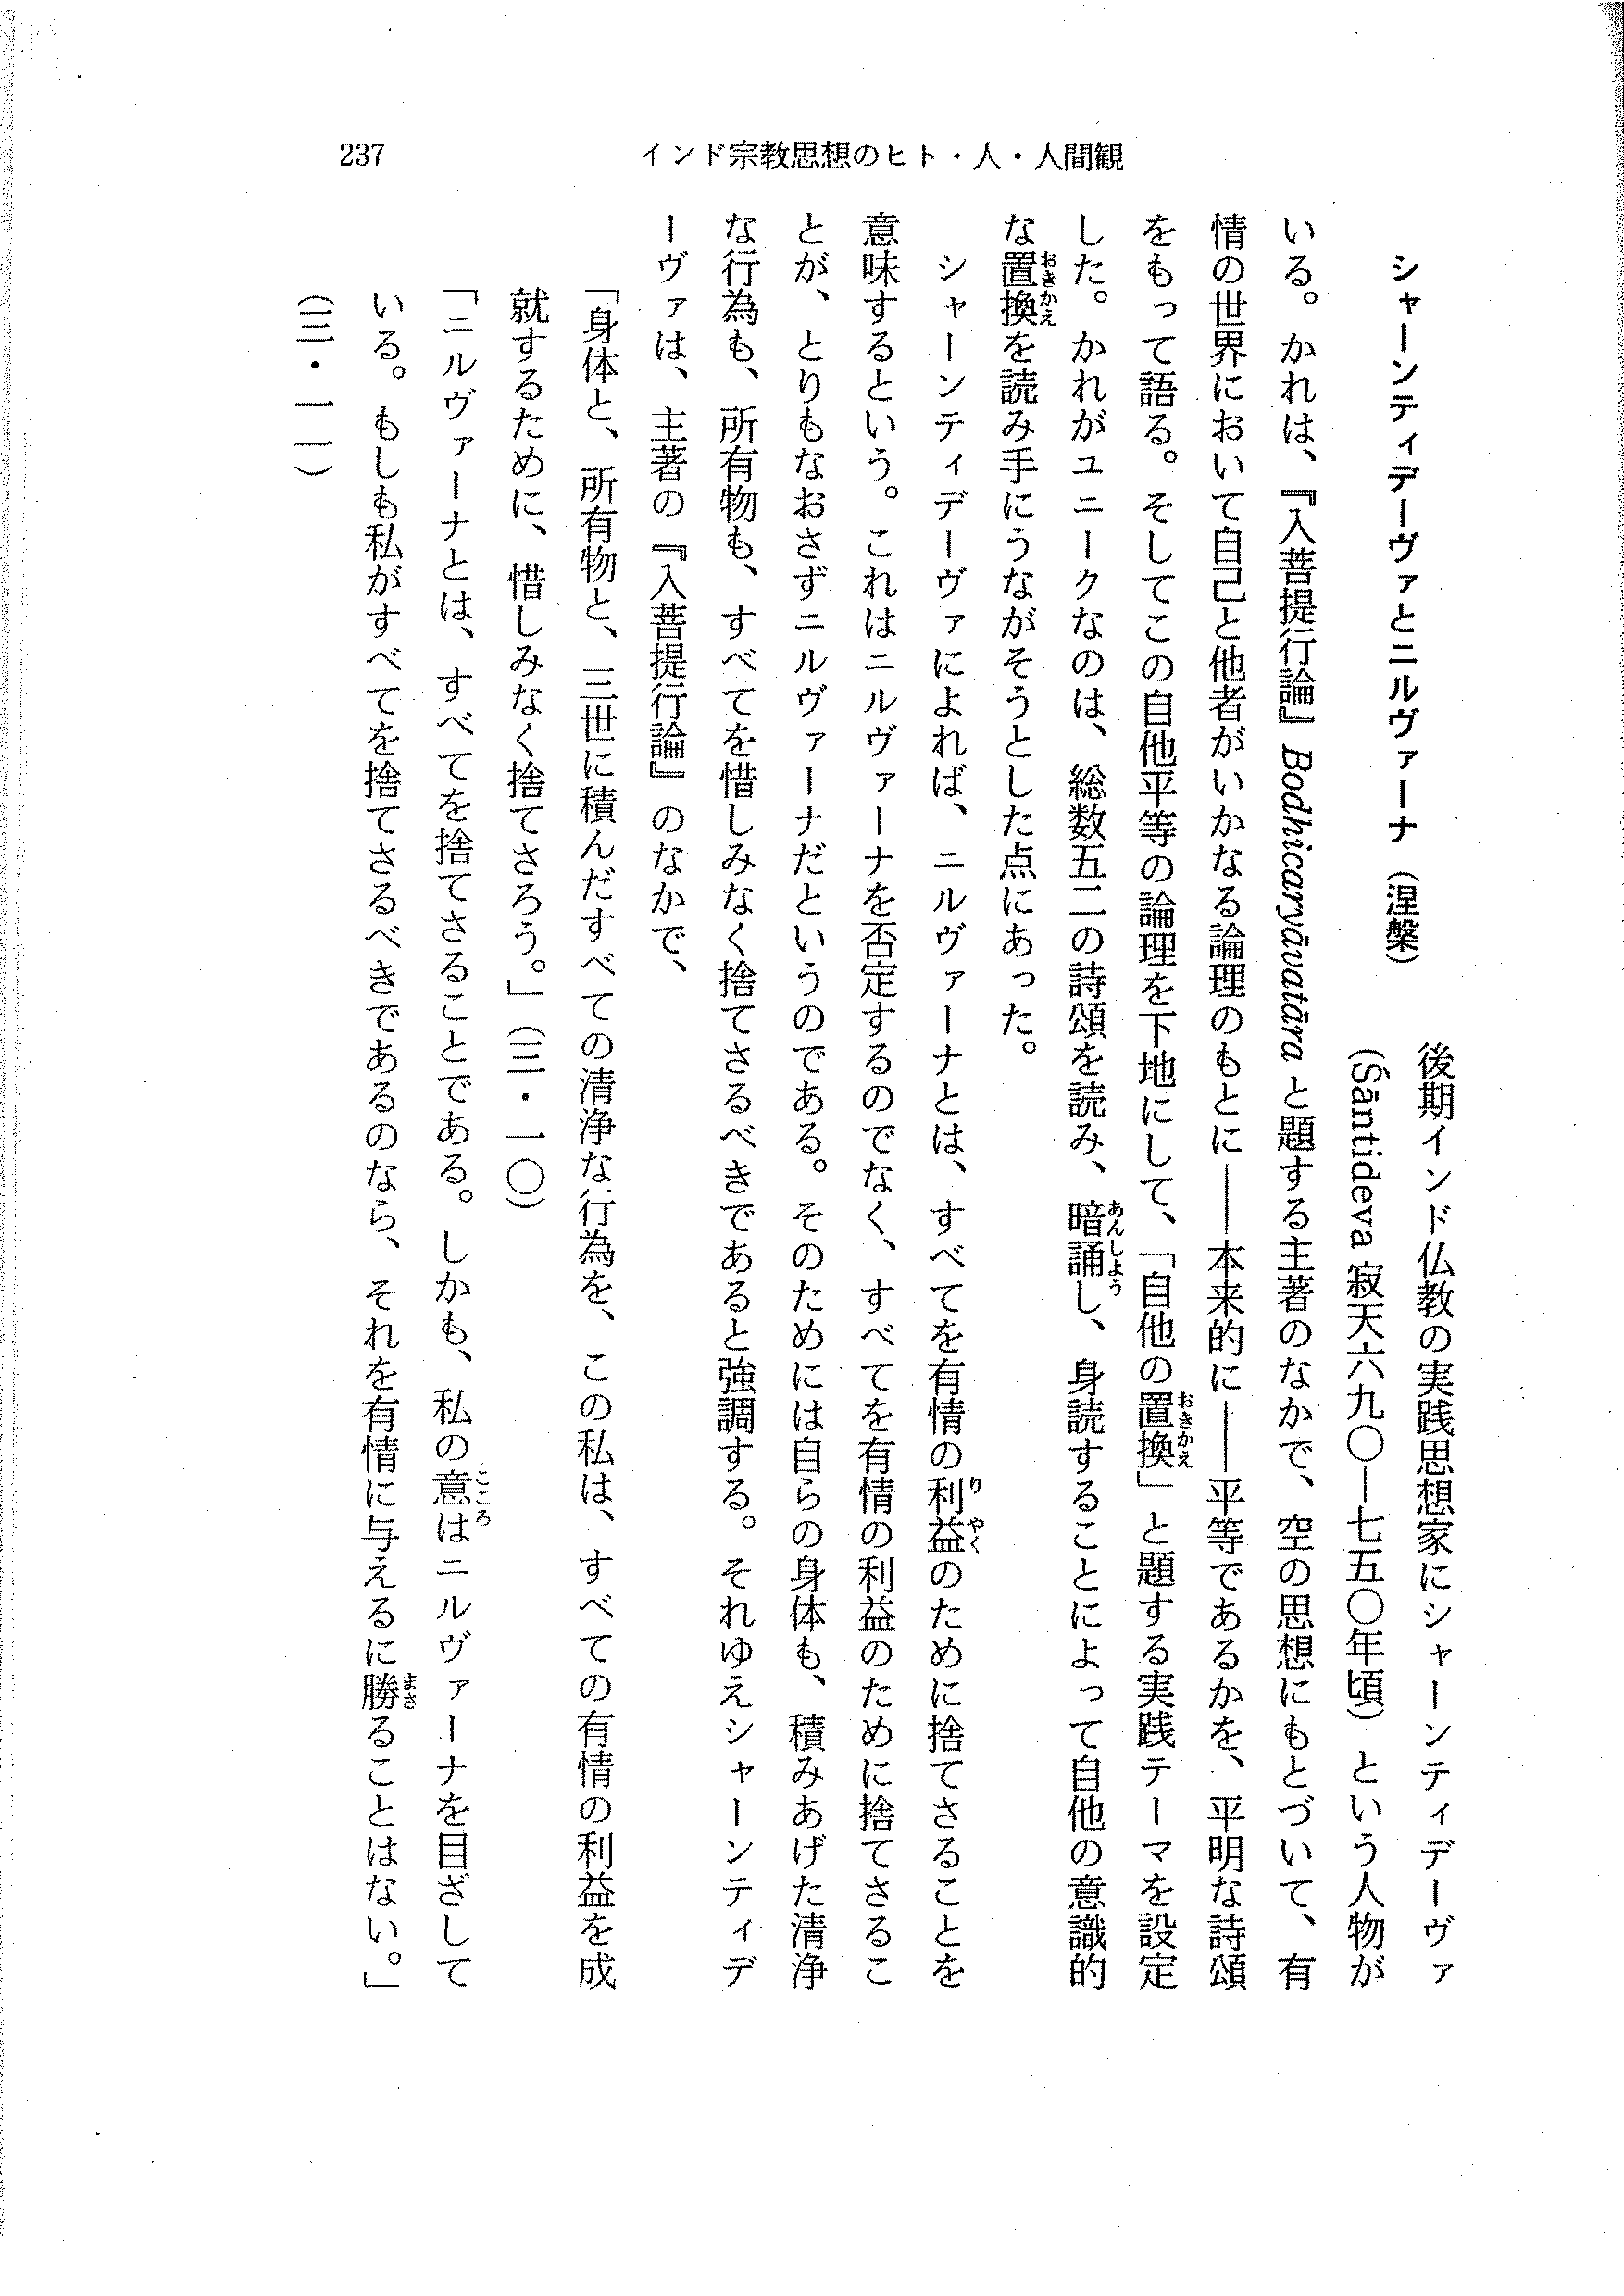 237
インド宗教思想のヒト・人・人間観
シャーンティデーヴァとニルヴァーナ（涅槃）
後期インド仏教の実践思想家にシャーンティデーヴァ
（Śāntideva 寂天六九〇―七五〇年頃）という人物が
いる。かれは、『入菩提行論』Bodhicaryāvatāra と題する主著のなかで、空の思想にもとづいて、有
情の世界において自己と他者がいかなる論理のもとに――本来的に――平等であるかを、平明な詩頌
をもって語る。そしてこの自他平等の論理を下地にして、「自他の置換おきかえ」と題する実践テーマを設定
した。かれがユニークなのは、総数五二の詩頌を読み、暗誦あんしようし、身読することによって自他の意識的
な置換おきかえを読み手にうながそうとした点にあった。
シャーンティデーヴァによれば、ニルヴァーナとは、すべてを有情の利益りやくのために捨てさることを
意味するという。これはニルヴァーナを否定するのでなく、すべてを有情の利益のために捨てさるこ
とが、とりもなおさずニルヴァーナだというのである。そのためには自らの身体も、積みあげた清浄
な行為も、所有物も、すべてを惜しみなく捨てさるべきであると強調する。それゆえシャーンティデ
ーヴァは、主著の『入菩提行論』のなかで、
「身体と、所有物と、三世に積んだすべての清浄な行為を、この私は、すべての有情の利益を成
就するために、惜しみなく捨てさろう。」（三・一〇）
「ニルヴァーナとは、すべてを捨てさることである。しかも、私の意こころはニルヴァーナを目ざして
いる。もしも私がすべてを捨てさるべきであるのなら、それを有情に与えるに勝まさることはない。」
（三・一一）